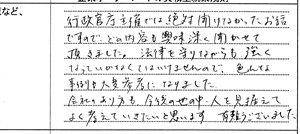 見など、
行政官庁主催では絶対聞けなかったお話
ですので、どの内容も興味深く聞かせて
頂きました。法律を守りながらも、強く
なっていかなくてはいけませんので、色んな
事例も大変参考になりました。
会社のあり方も、今後の世の中、人を見据えて
よく考えていきたいと思います 有難うございました